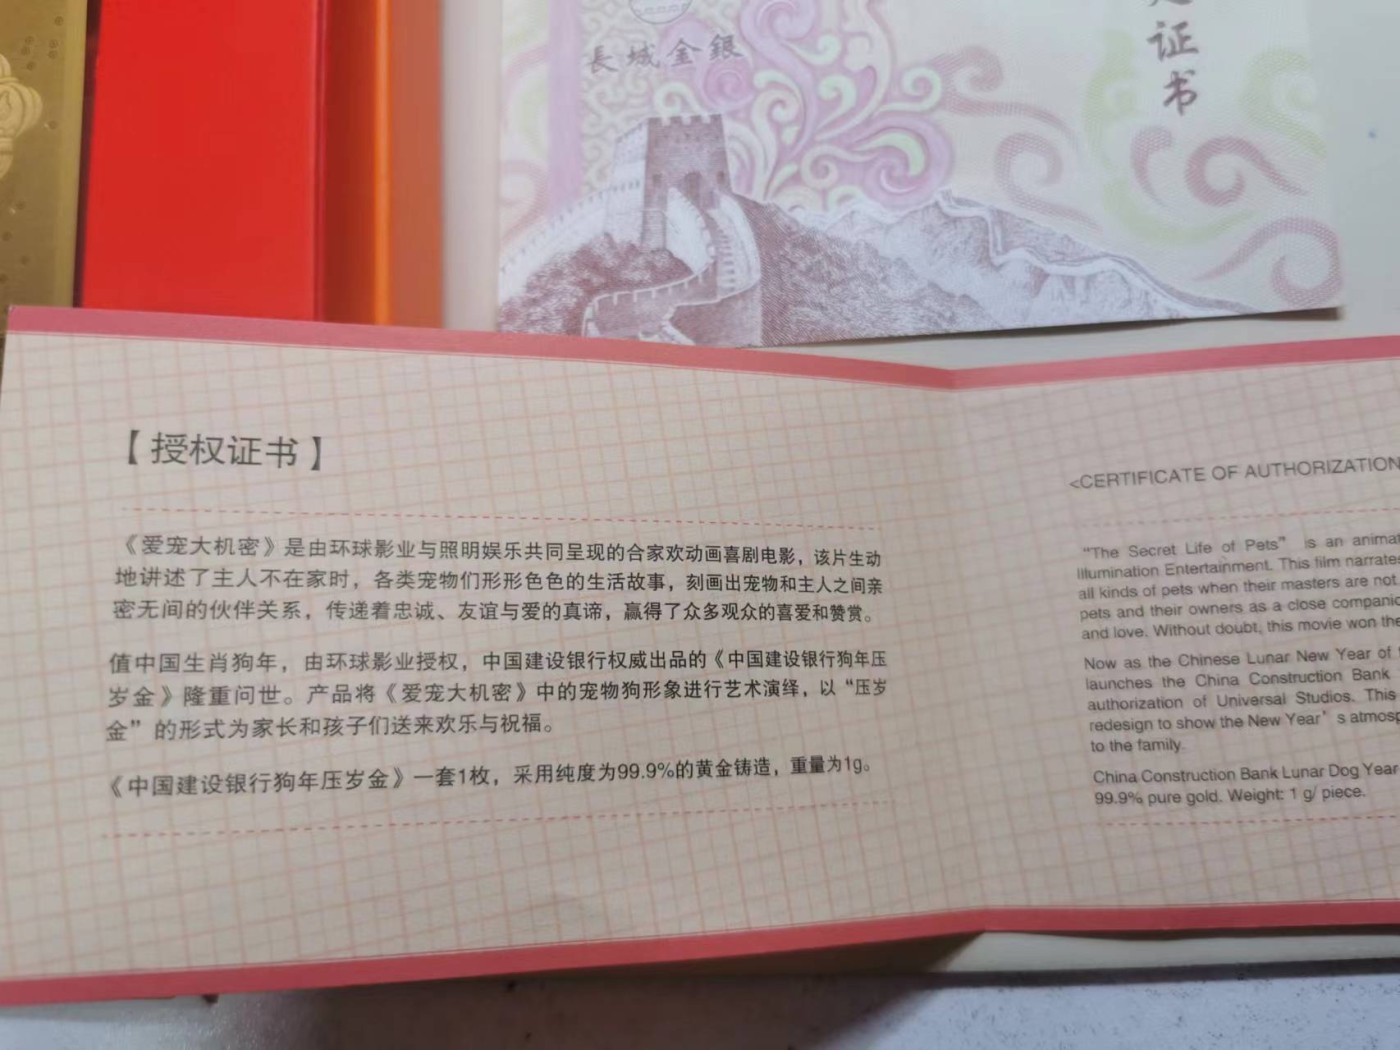 長城金銀
证书
【授权证书】
《爱宠大机密》是由环球影业与照明娱乐共同呈现的合家欢动画喜剧电影，该片生动
地讲述了主人不在家时，各类宠物们形形色色的生活故事，刻画出宠物和主人之间亲
密无间的伙伴关系，传递着忠诚、友谊与爱的真谛，赢得了众多观众的喜爱和赞赏。
值中国生肖狗年，由环球影业授权，中国建设银行权威出品的《中国建设银行狗年压
岁金》隆重问世。产品将《爱宠大机密》中的宠物狗形象进行艺术演绎，以“压岁
金”的形式为家长和孩子们送来欢乐与祝福。
《中国建设银行狗年压岁金》一套1枚，采用纯度为99.9%的黄金铸造，重量为1g。
<CERTIFICATE OF AUTHORIZATION
“The Secret Life of Pets” is an animat
Illumination Entertainment. This film narrates
all kinds of pets when their masters are not
pets and their owners as a close companio
and love. Without doubt, this movie won the
Now as the Chinese Lunar New Year of
launches the China Construction Bank
authorization of Universal Studios. This
redesign to show the New Year’s atmosp
to the family.
China Construction Bank Lunar Dog Year
99.9% pure gold. Weight: 1 g/ piece.